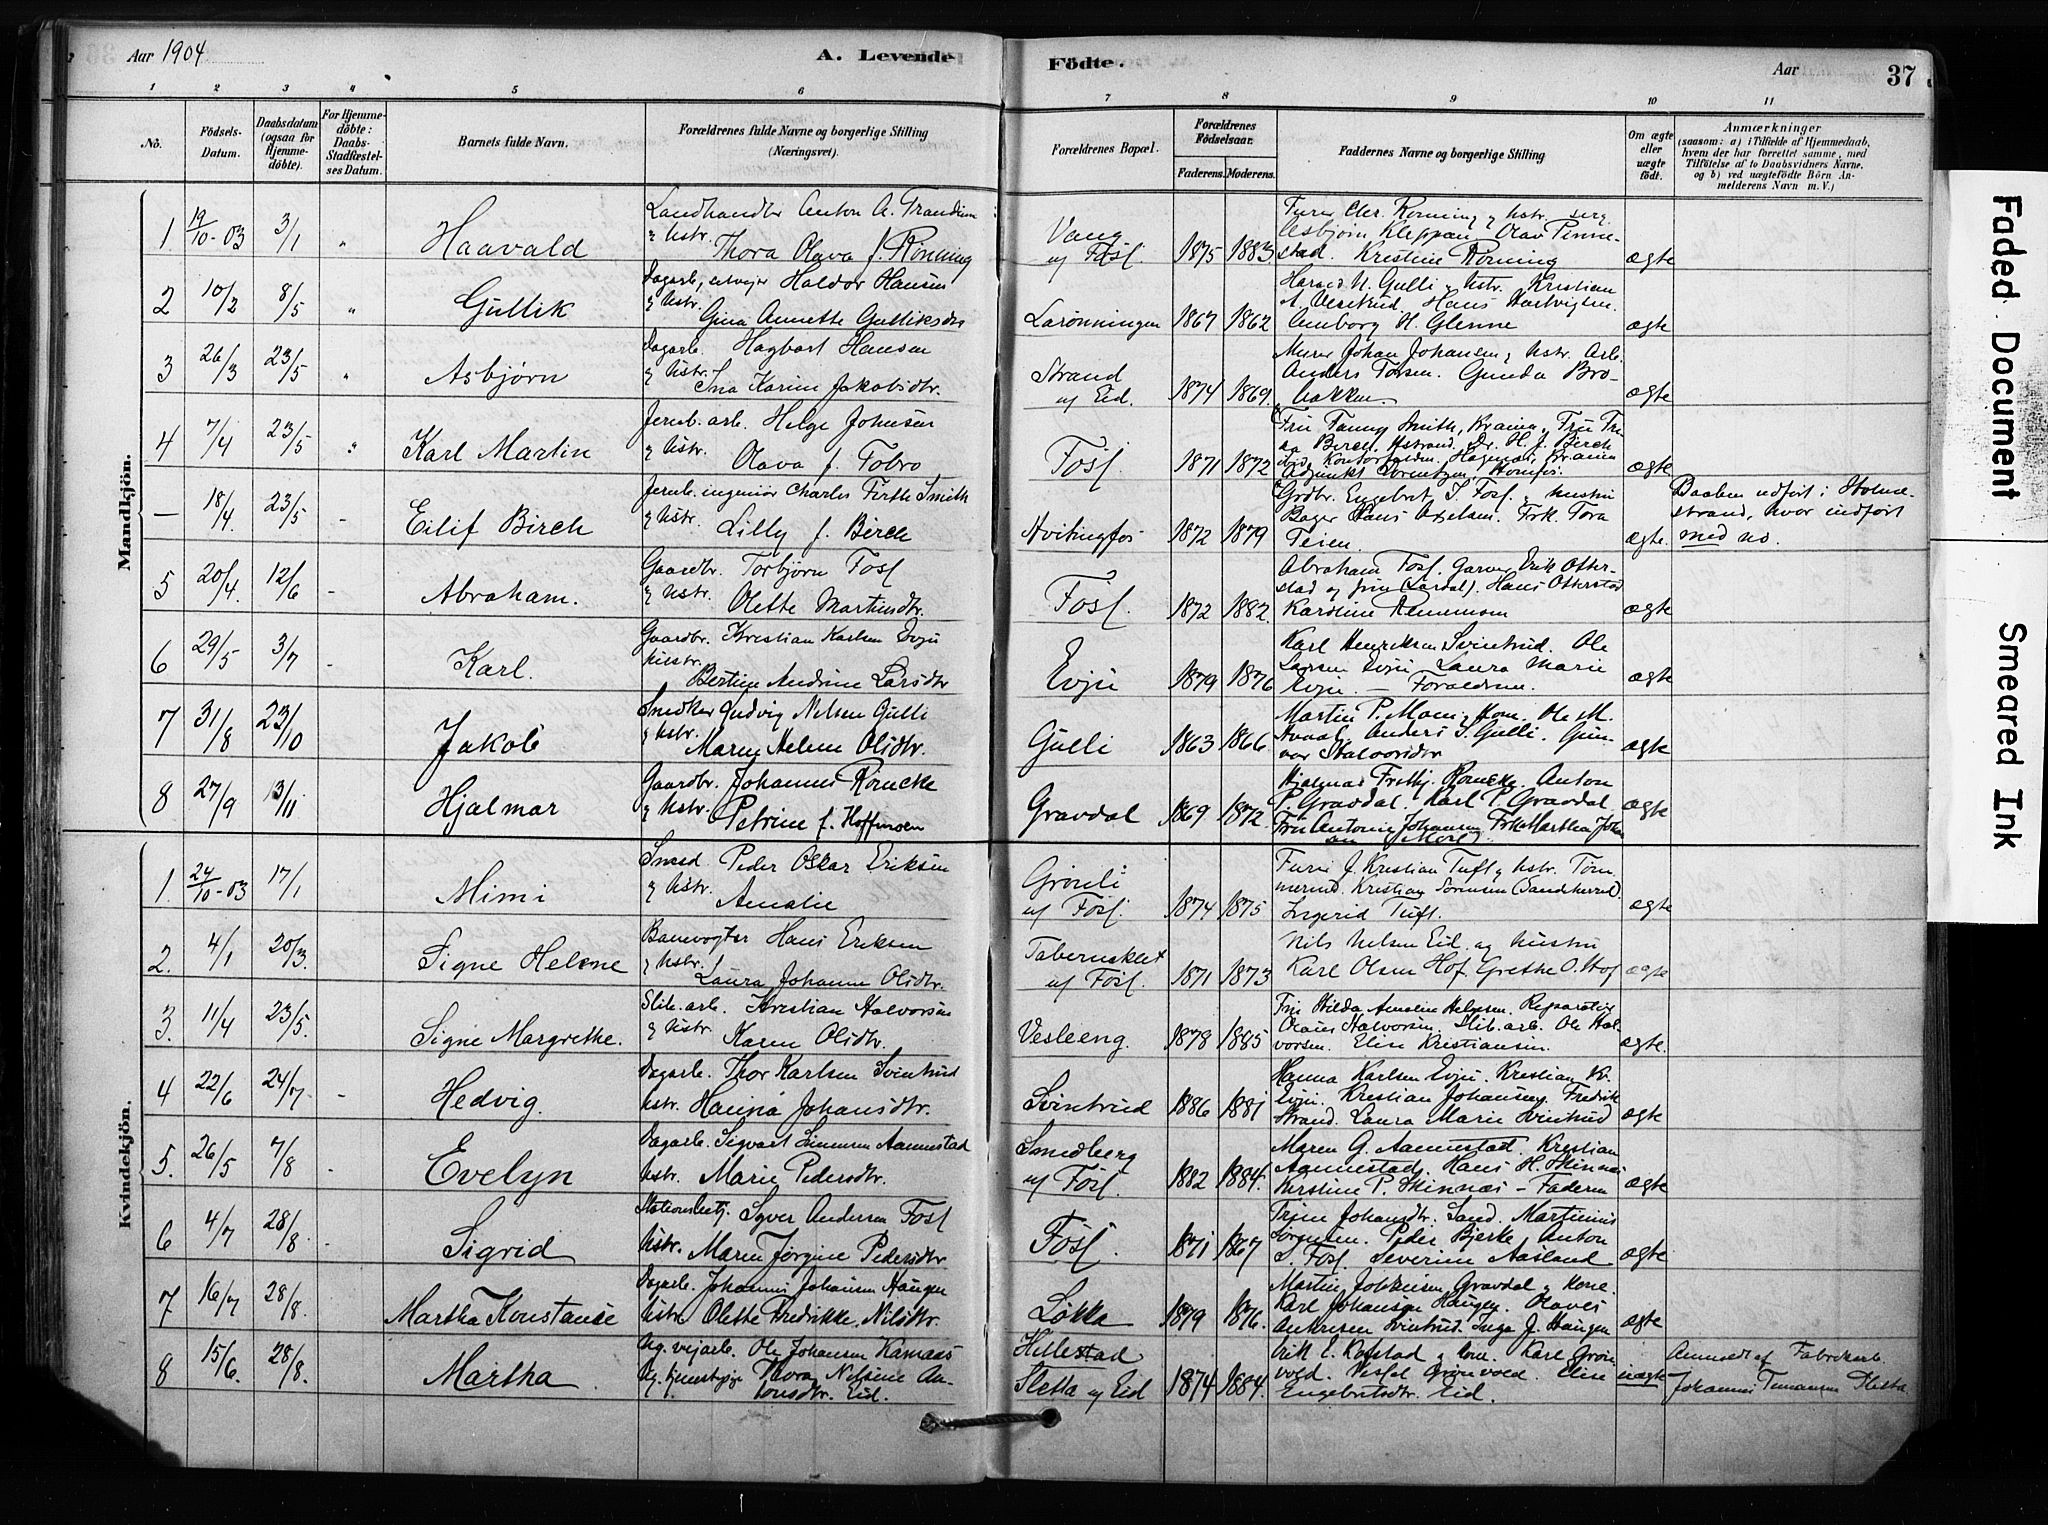 Aar 1904
A. Levende Födte.
Aar
37
1 2 3 4 5 6 7 8 9 10 11
No.
Födsels-Datum.
Daabsdatum (ogsaa for Hjemmedöbte).
For Hjemmedöbte: Daabs-Stadfæstelses Datum.
Barnets fulde Navn.
Forældrenes fulde Navne og borgerlige Stilling (Næringsvei).
Forældrenes Bopæl.
Forældrenes Födselsaar.
Faderens. Moderens.
Faddernes Navne og borgerlige Stilling
Om ægte eller uægte födt.
Anmærkninger
(saasom: a) i Tilfælde af Hjemmedaab, hvem der har forrettet samme, med Tilföielse af to Daabsvidners Navne, og b) ved uægtefödte Börn Anmelderens Navn m. V.)
Mandkjön.
1 19/10-03 3/1 " Haavald
Landhandler Anton A. Trandum
& Hstr. Thora Olava f. Rönning
Vang u/ Fosf. 1875 1883.
Kristine Rönning
ægte
2 10/2 8/5 " Gullik
Dagarb. Haldor Hansen
& Hstr. Gina Annette Gulliksdtr
Larönningen 1867 1862
Gulli & Hstr. Kristian
Hans Hartvigsen.
H. Glenne
ægte
3 26/3 23/5 " Asbjørn
Dagarb. Hagbart Hansen
& Hstr. Ina Karine Jakobsdtr.
Strand u/ Eid. 1874 1869.
Murer Johan Johansen & Hstr. Arb.
Anders Torsen. Gunda Brobakken.
ægte
4 7/4 23/5 " Karl Martin
Jernb. arb. Helge Johnsen
& Hstr. Olava f. Tobro
Fosf. 1871 1872
Fru Fanny Smith, Fru
Birch, Dr. H. J. Birch
ægte
— 18/4. 23/5 - Eilif Birch
Jernb. ingeniör Charles Firth Smith
& Hstr. Lilly f. Birch
Hvitingfos 1872 1879
Grdbr. Engebret S. Fosf. & hustru
Bager Hans Axelsen. Frk. Tora
Teien.
ægte.
Daaben udført i Holmestrand, hvor indført
med no.
5 20/4. 12/6 - Abraham.
Gaardbr. Torbjörn Fosf
& Hstr. Olette Martinsdtr.
Fosf. 1872 1882.
Abraham Fosf. Garver Erik Otterstad og frue (Lardal). Hans Otterstad
Karoline
ægte
6 29/5 3/7 - Karl.
Gaardbr. Kristian Karlsen Evju
Hustr. Bertine Andrine Larsdtr
Evju 1879 1876
Karl Henriksen Svintrud. Ole
Larsen Evju. Laura Marie
Evju. — Forældrene.
ægte
7 31/8 23/10 Jakob
Snedker Ludvig Nelsen Gulli
& Hstr. Maren Helene Olsdtr.
Gulli 1863 1866.
Martin P. Moen & Kone. Ole M.
Hvaal. Anders S. Gulli. Gunvor Halvorsdtr
ægte
8 27/9 13/11 Hjalmar
Gaardbr. Johannes Römcke
& Hstr. Petrine f. Hoffmoen
Gravdal 1869 1872.
Hjalmar Römcke. Anton
P. Gravdal. Karl P. Gravdal
Fru Antonie Johansen Frk. Martha
ægte
Kvindekjön.
1. 24/10-03 17/1 Mimi
Smed Peder Oskar Eriksen
& Hstr. Amalie
Grönli u/ Fosf. 1874 1875
J. Kristian Tuft & Hstr.
Kristian Sörensen
Ingerid Tuft.
ægte
2. 4/1 20/3. Signe Helene
Banevogter Hans Eriksen
& Hstr. Laura Johanne Olsdtr.
Tabernaklet u/ Fosf. 1871 1873
Nils Nelsen Eid. og hustru
Karl Olsen Hof. Grethe O. Hof
ægte
3. 11/4 23/5 Signe Margrethe.
Slib. arb. Kristian Halvorsen
& Hstr. Karen Olsdtr.
Vesleeng. 1878 1885.
Fru Hilda Amalie
Olaus Halvorsen. Slib. arb. Ole Halvorsen. Elise Kristiansen.
ægte.
4 22/6 24/7 - Hedvig.
Dagarb. Thor Karlsen Svintrud
Hstr. Hanna Johansdtr.
Svintrud 1886 1881
Hanna Karlsen Evju. Kristian
Evju. Kristian Johansen, Fredrik
Strand. Laura Marie Svintrud
ægte
5. 26/5 7/8 - Evelyn
Dagarb. Sigvart Simensen Aannestad
Hstr. Marie Pedersdtr.
Smedberg u/ Fosf. 1882 1884.
Maren G. Aannestad. Kristian
Aannestad. Hans H. Skinnes
Kirstine P. Skinnes – Faderen
ægte
6 4/7 28/8. - Sigrid
Stationsbetj. Syver Andersen Fosf
Hstr. Maren Jørgine Pedersdtr
Fosf. 1871 1867
Trine Johansdtr. Sand. Martinus
Sörensen. Peder Bjerke. Anton
S. Fosf. Severine Aasland
ægte
7 16/7 28/8. Martha Konstanse
Dagarb. Johannes Johansen Haugen
Hstr. Olette Fredrikke Nilsdtr.
Løkka 1879 1876.
Martin Gravdal & Kone.
Karl Johansen Haugen. Olaves
Svintrud. Inga J. Haugen
ægte
8 15/6. 28/8. Martha
Ug. vejarb. Ole Johansen Kamaas
Ug. tjenestepige Thora Nelsine Antonsdtr. Eid.
Hillestad
Sletta u/ Eid 1874 1884.
Erik E. & Kone. Karl Grönvold. Grönvold. Elise
Engebretsdtr. Eid.
uægte
Anmeldt af Fabrikarb.
Johannes Sletta
Faded Document
Smeared Ink